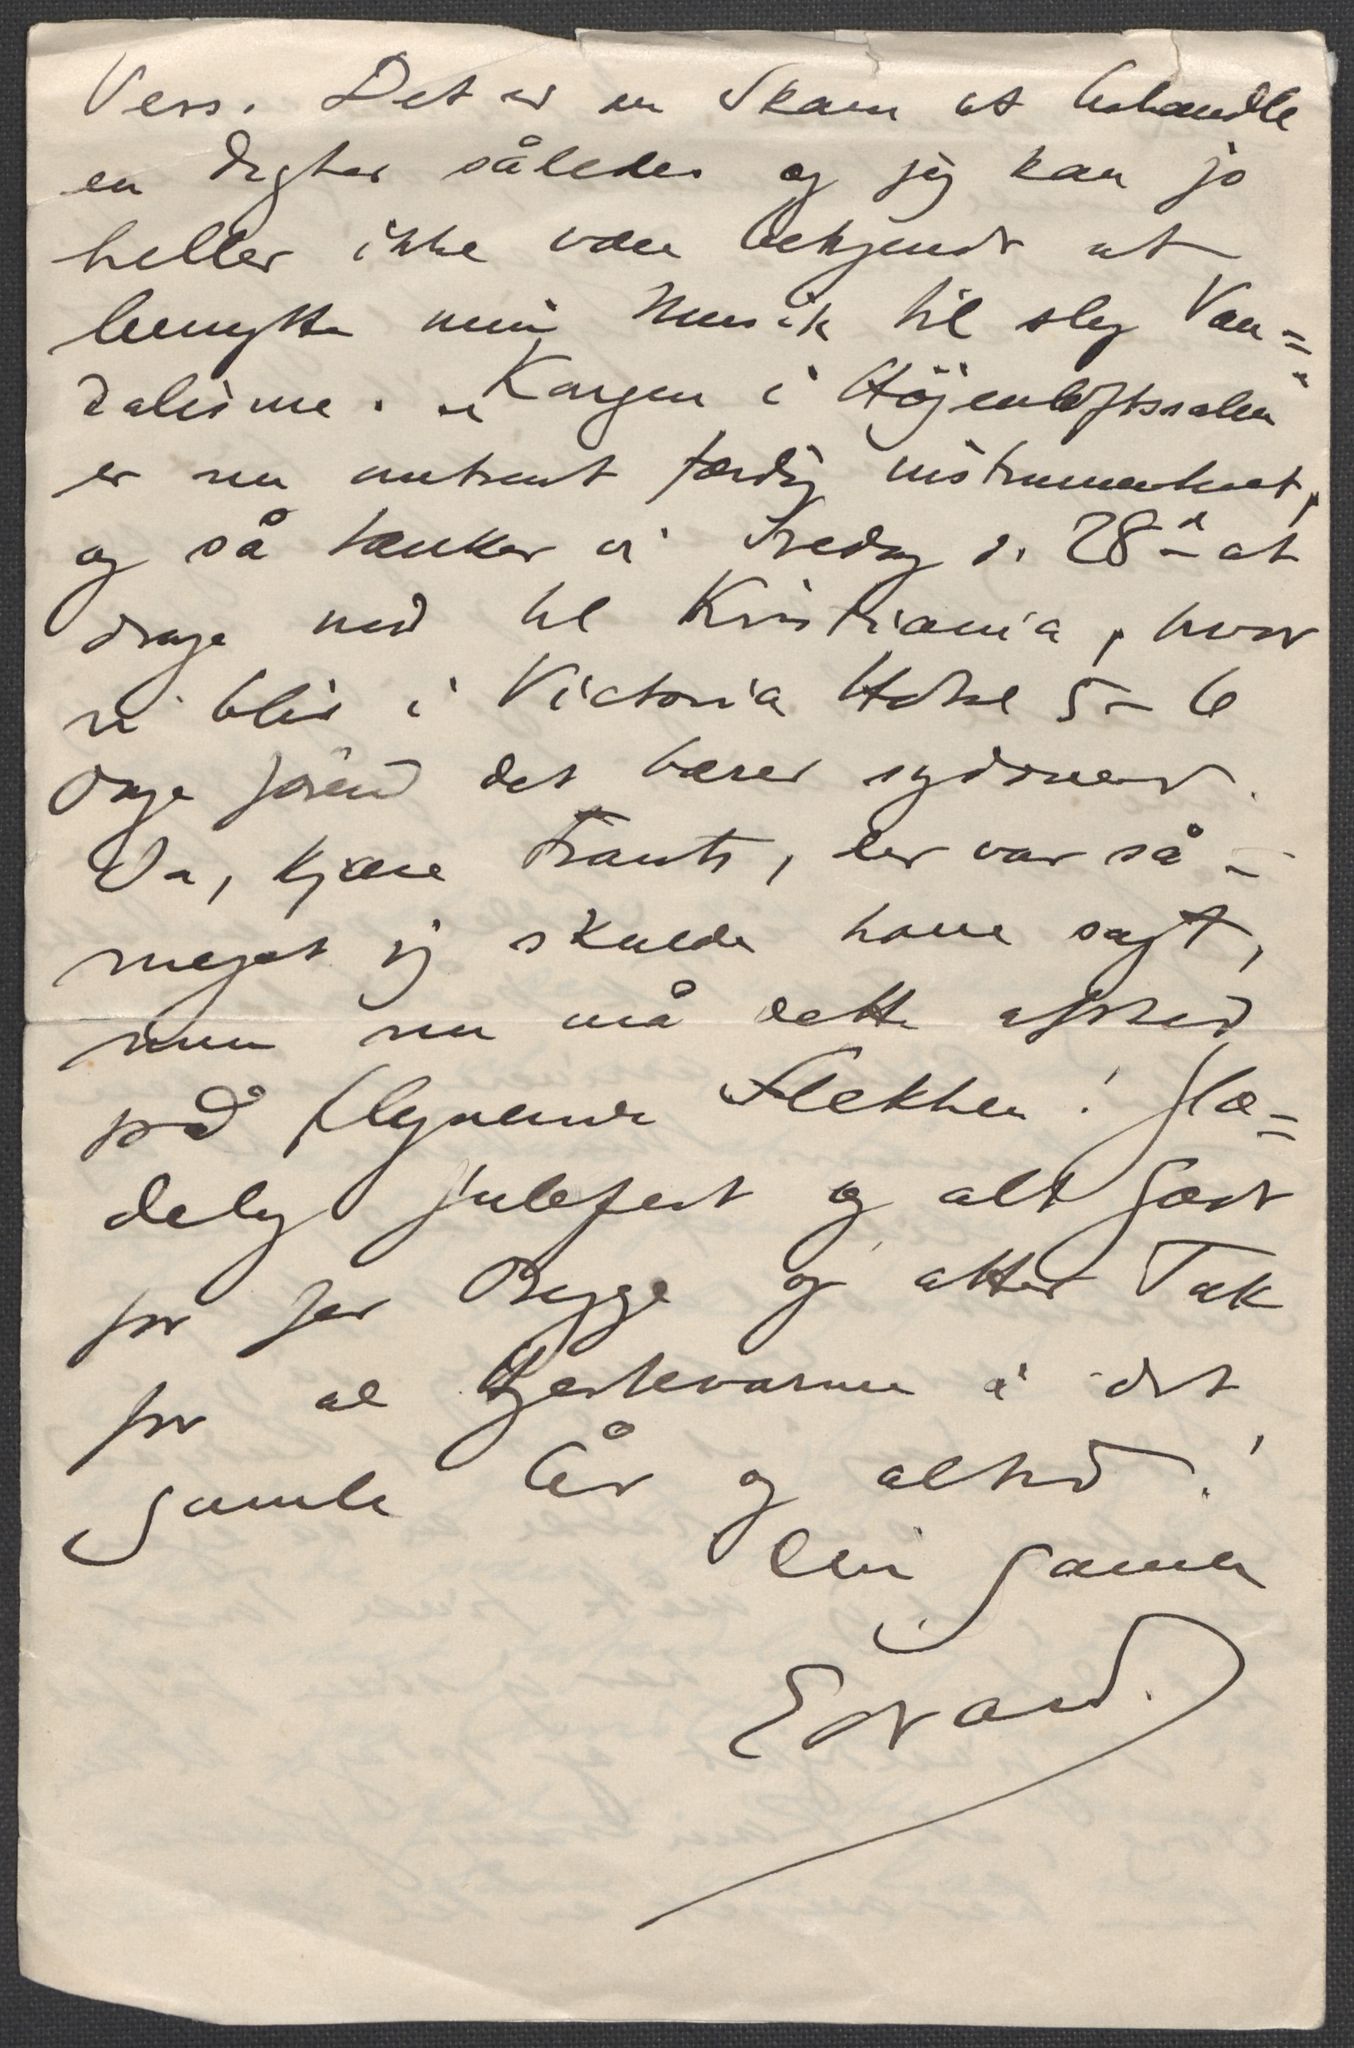 Vers. Det er en Skam at behandle
en Digter således og jeg kan jo
heller ikke være bekjendt at
benytte min Musik til slig Van=
dalisme. „Kongen i Höjenloftssalen“
er nu omtrent færdig instrumenteret,
og så tænker vi Fredag d. 28de at
drage ned til Kristiania, hvor
vi blir i Victoria Hotel 5–6
Dage förend det bærer sydover.
Ja, kjære Frants, der var så
meget jeg skulde have sagt,
men nu må dette afsted
på flyvende Flekken! Glæ=
delig Julefest og alt Godt
for Jer Begge og atter Tak
for al Hjertevarme i det
gamle År og altid!
Din gamle
Edvard.